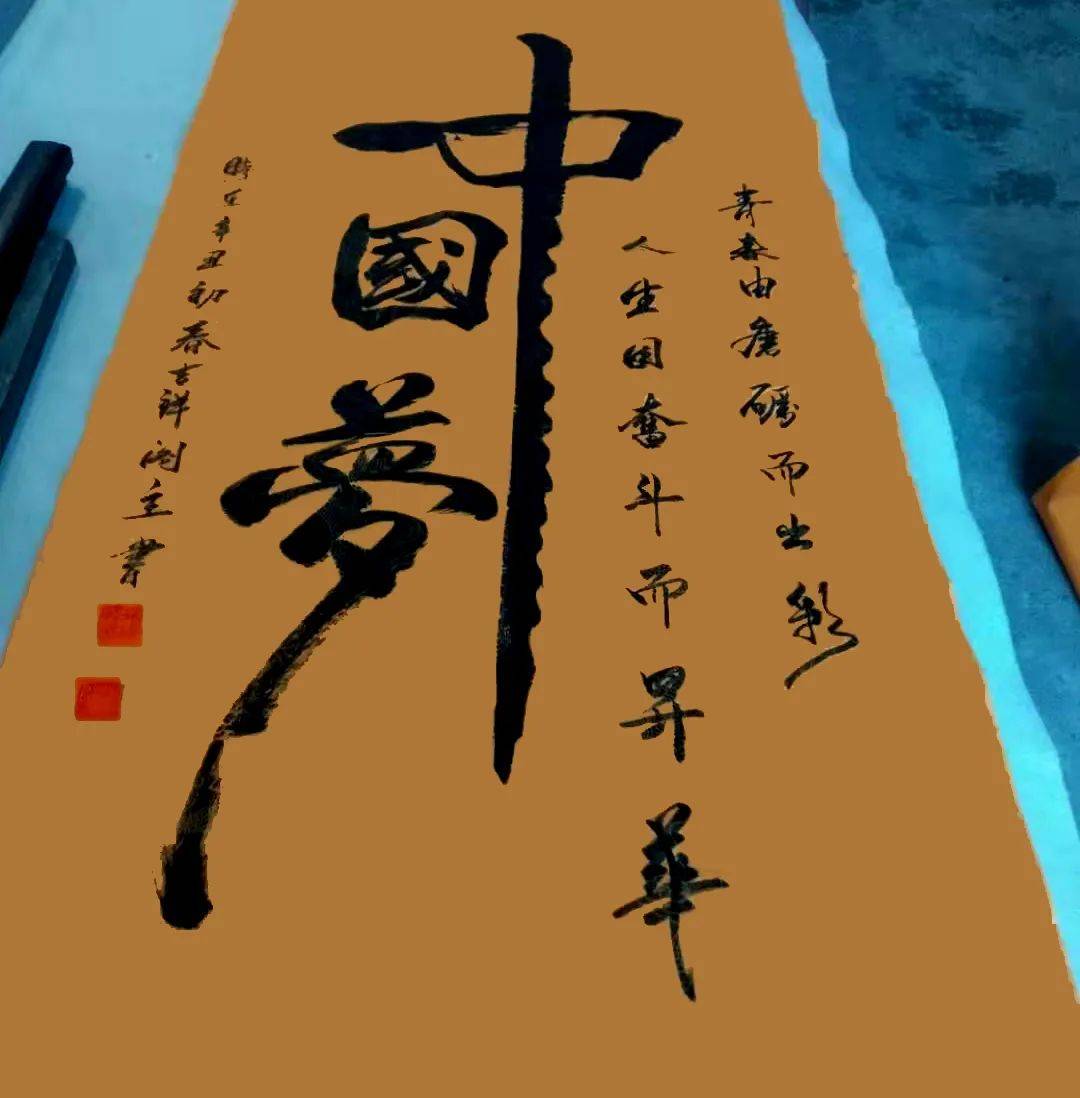 青春由磨礪而出彩
人生因奮斗而昇華
中國夢
時在辛丑初春吉祥阁主書